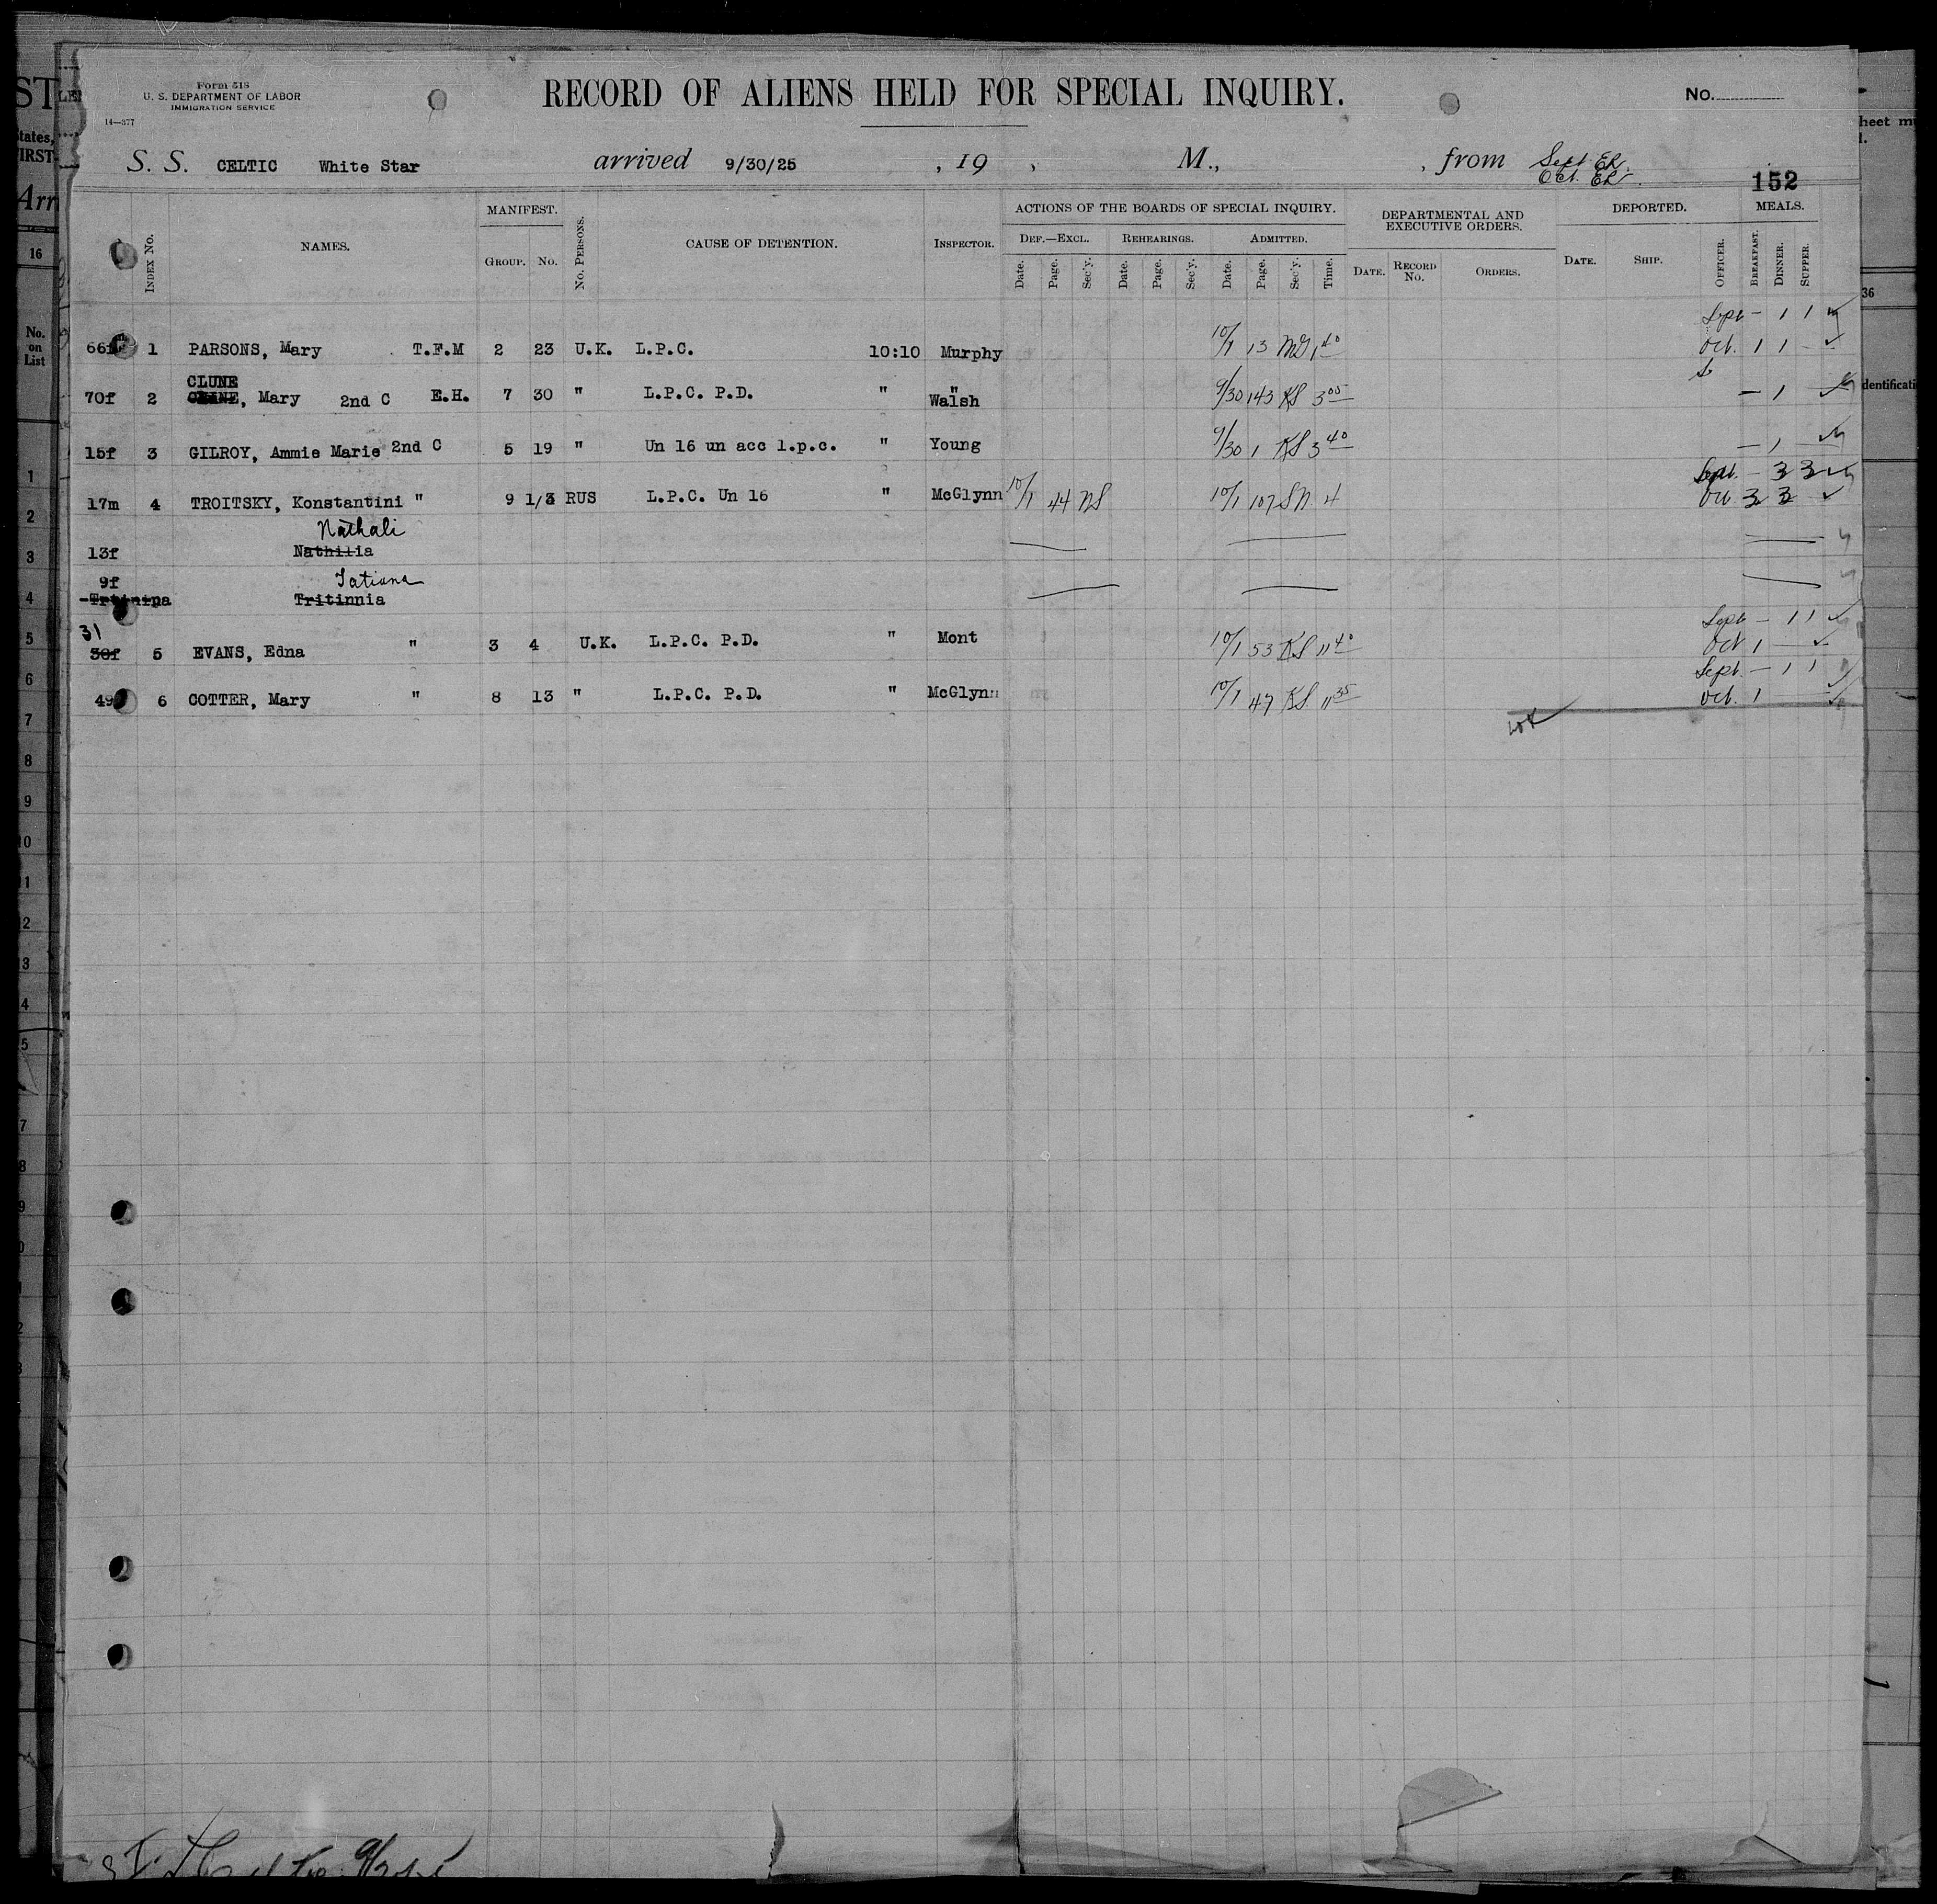 Form 518
U. S. DEPARTMENT OF LABOR
IMMIGRATION SERVICE
14—377
RECORD OF ALIENS HELD FOR SPECIAL INQUIRY.
No.
S. S. CELTIC White Star arrived 9/30/25 , 19 , M., , from Sept. ER.
Oct. ER.
152
INDEX NO. NAMES. MANIFEST. GROUP. NO. NO. PERSONS. CAUSE OF DETENTION. INSPECTOR. ACTIONS OF THE BOARDS OF SPECIAL INQUIRY. DEPARTMENTAL AND EXECUTIVE ORDERS. DEPORTED. MEALS.
DEF.—EXCL. REHEARINGS. ADMITTED.
Date. Page. Sec'y. Date. Page. Sec'y. Date. Page. Sec'y. Time. DATE. RECORD NO. ORDERS. DATE. SHIP. OFFICER. BREAKFAST. DINNER. SUPPER.
Sept — 1 1
66f 1 PARSONS, Mary T.F.M 2 23 U.K. L.P.C. 10:10 Murphy 10/1 13 McG 1 40 Oct. 1 1 —
CLUNE
70f 2 CLANE, Mary 2nd C E.H. 7 30 " L.P.C. P.D. " Walsh 9/30 143 KS 3 00 — 1
15f 3 GILROY, Ammie Marie 2nd C 5 19 " Un 16 un acc l.p.c. " Young 9/30 1 KS 3 40 — 1
Sept. — 3 3
17m 4 TROITSKY, Konstantini " 9 1/3 RUS L.P.C. Un 16 " McGlynn 10/1 44 NS 10/1 107 SN. 4 Oct 3 3
Nathali
13f Nathilia
9f Tatiana
Tritinnia
Sept — 1 1
31
30f 5 EVANS, Edna " 3 4 U.K. L.P.C. P.D. " Mont 10/1 53 KS 11 40 Oct 1 —
Sept. — 1 1
49 6 COTTER, Mary " 8 13 " L.P.C. P.D. " McGlynn 10/1 47 KS. 11 35 Oct. 1
ST
States,
FIRST
Arr
16
No.
on
List
1
2
3
4
5
6
7
8
9
10
11
heet mu
36
dentificati